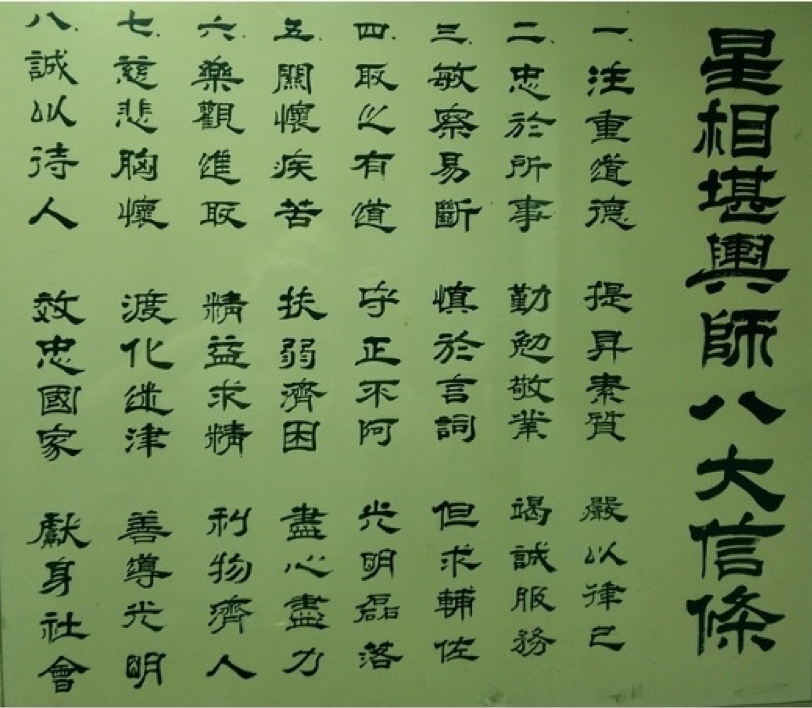 星相堪輿師八大信條
一、注重道德 提昇素質 嚴以律己
二、忠於所事 勤勉敬業 竭誠服務
三、敏察易斷 慎於言詞 但求輔佐
四、取之有道 守正不阿 光明磊落
五、關懷疾苦 扶弱濟困 盡心盡力
六、樂觀進取 精益求精 利物濟人
七、慈悲胸懷 渡化迷津 善導光明
八、誠以待人 效忠國家 獻身社會